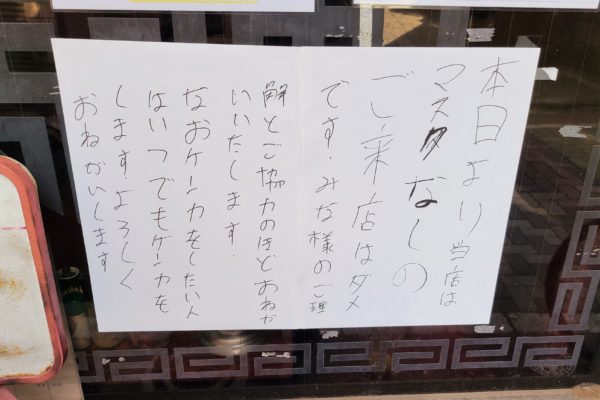 本日より当店は
マスクなしの
ご来店はダメ
です。みな様のご理
解とご協力のほどおねが
いいたします。
なおケンカをしたい人
はいつでもケンカを
します。よろしく
おねがいします